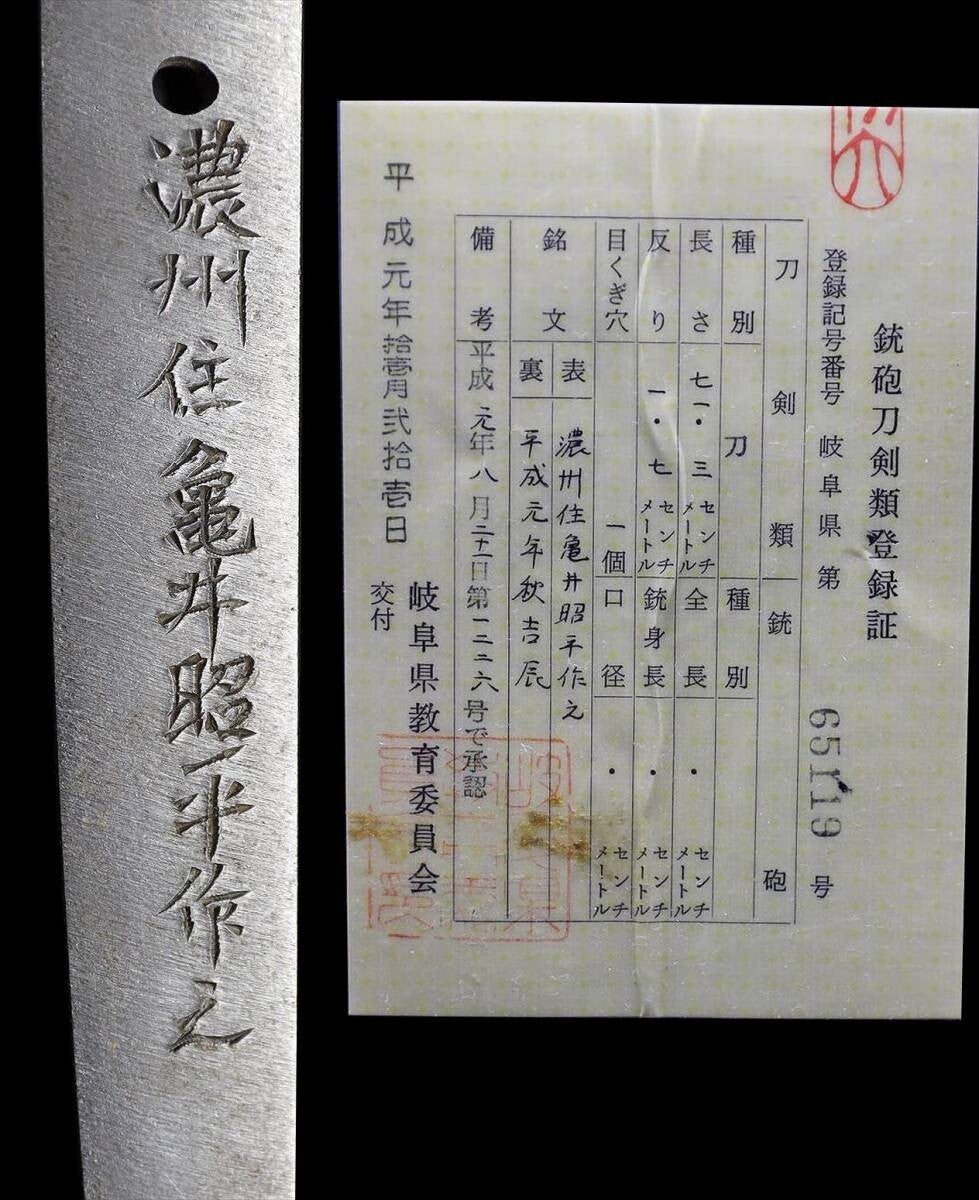 濃州住亀井昭平作之
銃砲刀剣類登録証
登録記号番号 岐阜県第 65119 号
刀剣類 銃砲
種別 刀 種別
長さ 七一・三 センチメートル 全長 ・ センチメートル
反り 一・七 センチメートル 銃身長 ・ センチメートル
目くぎ穴 一個 口径 ・ センチメートル
銘文 表 濃州住亀井昭平作之
裏 平成元年秋吉辰
備考 平成元年八月二十一日第一二二六号で承認
平成元年拾壱月弐拾壱日
岐阜県教育委員会
交付